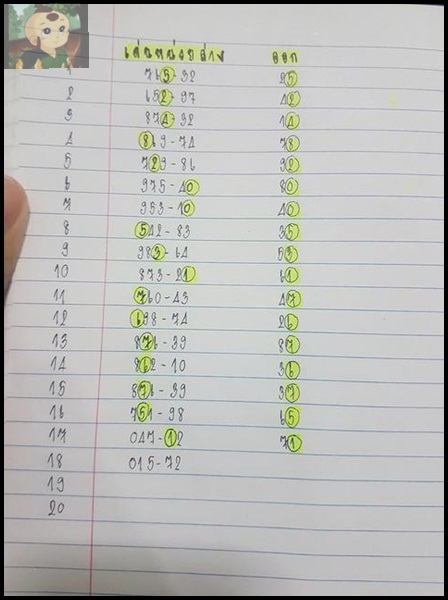 เด่นหน่วยล่าง ออก
1 765-32 25
2 652-97 42
3 874-32 14
4 869-74 78
5 729-86 92
6 975-40 80
7 953-10 40
8 542-83 35
9 983-64 53
10 873-21 61
11 760-43 47
12 698-74 26
13 876-39 87
14 862-10 36
15 876-39 37
16 751-98 65
17 047-12 71
18 015-72
19
20